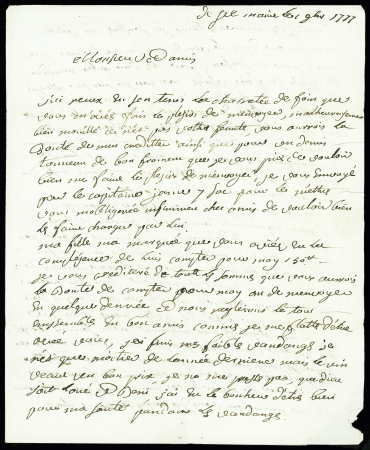 de 1777
Monsieur & amis
j'ai reçeux en son tems la charretée de foin que
vous m'avés fais le plesir de m'envoyer, malheureusement
bien mouillé ce n'est pas votre faute vous aurois la
bonté de men mettre ainsi que pour un demis
tonneau de bon froment que je vous prie de vouloir
bien me faire le plesir de m'envoyer, je vous envoye
par le capitaine sac pour le mettre
vous mobligerée infiniment cher amis de vouloir bien
le faire charger par lui
ma fille ma marquée que vous aviés eu la
complesence de luis compter pour moy 150
je vous crediteré de toute la somme que vous aurois
la bonté de compter pour moy ou de m'envoyer
en quelque denrée & nous reglerons le tout
ensemble en bon amis comme je me flatte d'être
avec vous, j'es finis mes faible vandange je
n'es que moitier de l'année derniere mais le vin
veaux un bon prix je ne me pas que dieu
soit loué & beni j'ai eu le bonheur d'être bien
pour ma santé pandans les vandange